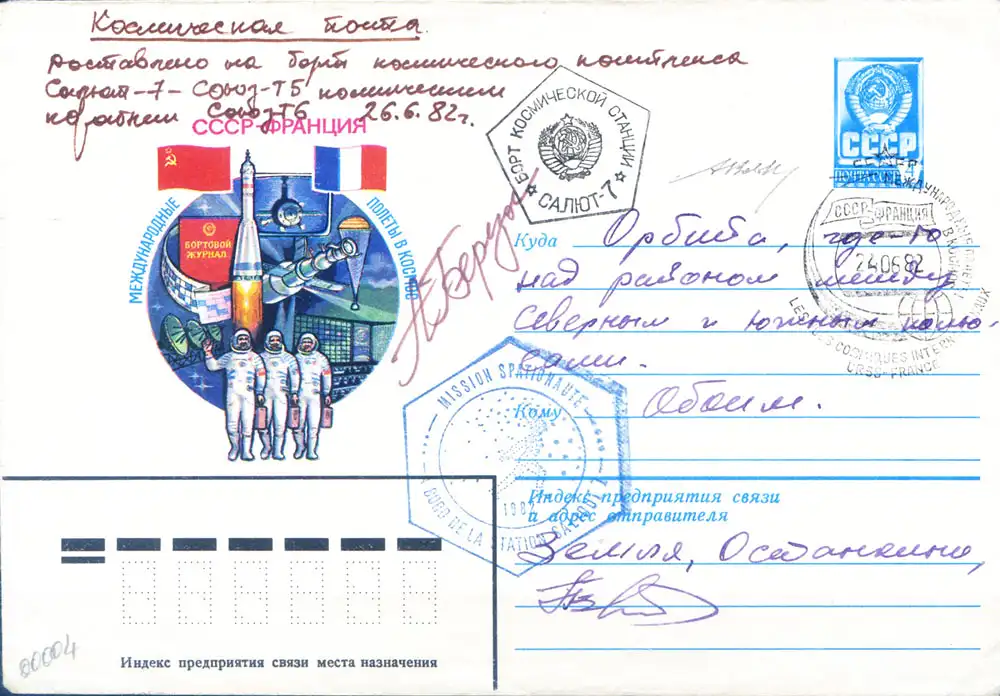 Космическая почта.
Доставлено на борт космического комплекса
Салют-7 - Союз-Т5 космическим
кораблем Союз Т6 26.6.82г.
СССР-ФРАНЦИЯ
МЕЖДУНАРОДНЫЕ
ПОЛЕТЫ В КОСМОС
БОРТОВОЙ
ЖУРНАЛ
БОРТ КОСМИЧЕСКОЙ СТАНЦИИ
САЛЮТ-7
СССР
ПОЧТА
СССР ФРАНЦИЯ
24.06.82
COSMIQUES INTERN
URSS-FRANCE
Куда Орбита, где-то
над районом между
Северным и Южным полю-
сами.
Кому Обоим.
MISSION SPATIONAUTE
1982
A BORD DE LA STATION SALIOUT 7
Индекс предприятия связи
и адрес отправителя
Земля, Останкино,
Индекс предприятия связи места назначения
00004